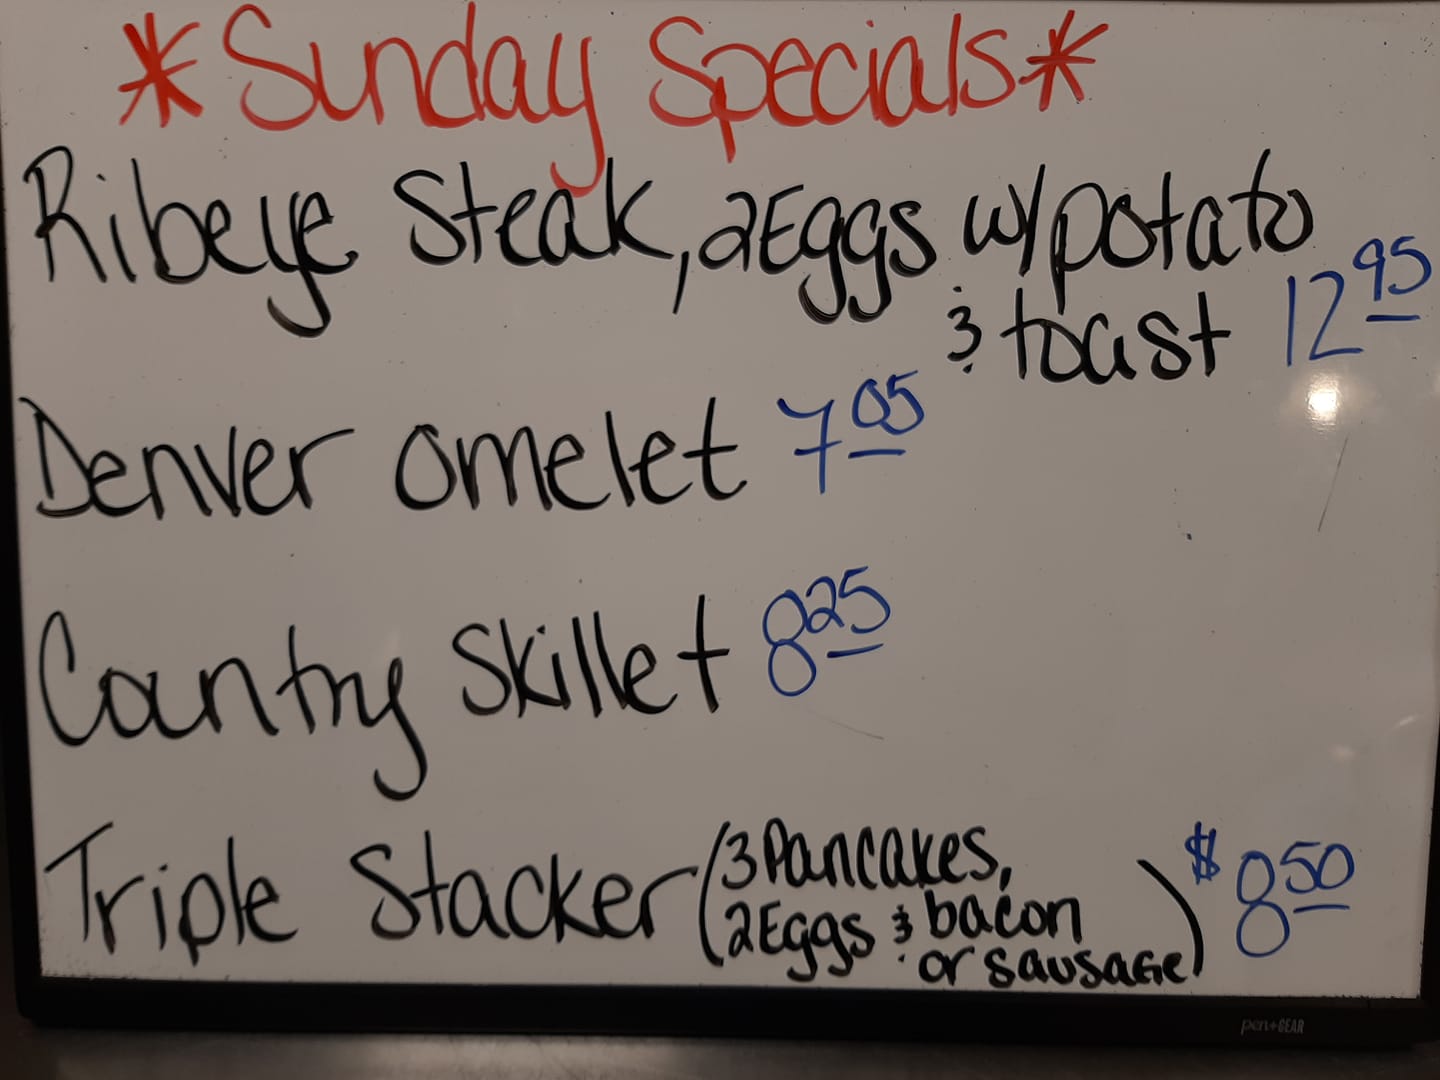 *Sunday Specials*
Ribeye Steak, 2Eggs w/potato
& toast 12 95
Denver omelet 7 05
Country Skillet 8 25
Triple Stacker (3 Pancakes,
2 Eggs & bacon
or sausage) $8 50
pen+GEAR